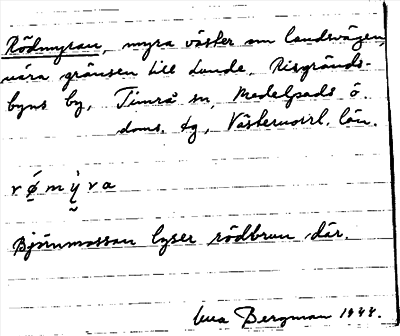 Rödmyran, myra väster om landsvägen,
nära gränsen till Lunde, Risgrånds-
byns by, Timrå sn, Medelpads ö.
doms. tg, Västernorrl. län.
r ǿ m ỳ r a
Björnmossan lyser rödbrun där.
Bergman 1944.